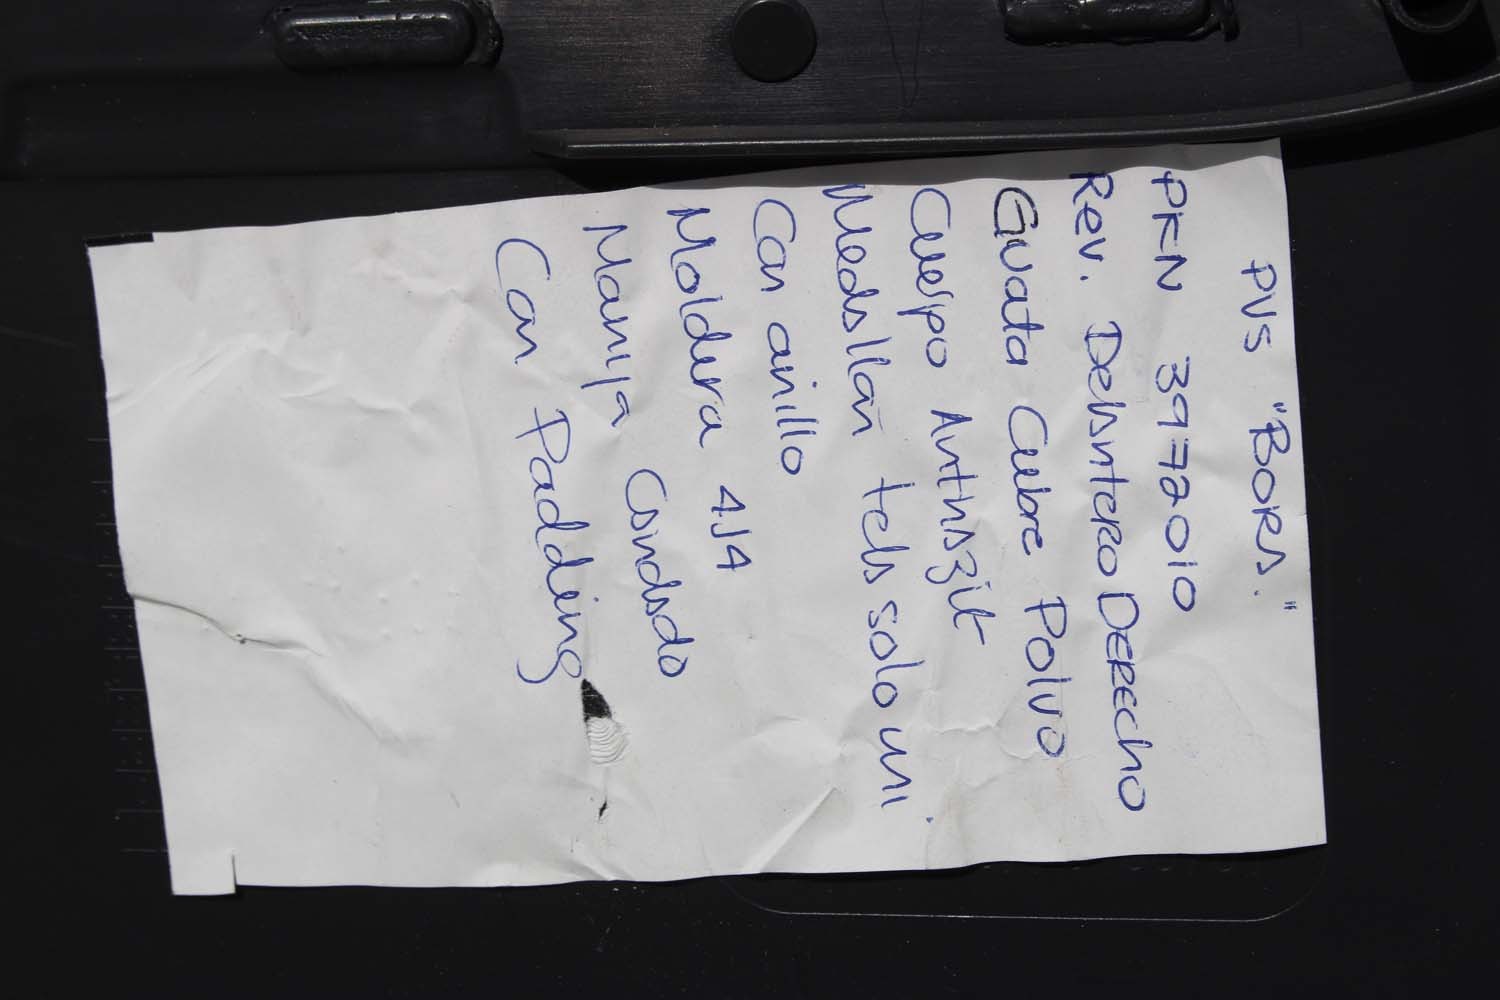 PVS "BORA."
PKN 3972010
Rev. Delantero DERECHO
Guata Cubre Polvo
Cuerpo Anthazit
Medallón tela solo uni.
Con anillo
Moldura 4J4
Manija Candado
Con Padding